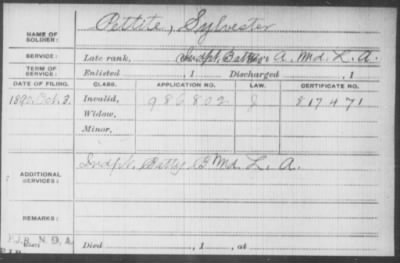 NAME OF SOLDIER: Pettite, Sylvester
SERVICE: Late rank, Indpt. Batty A. Md. L. A.
TERM OF SERVICE: Enlisted , 1 Discharged , 1
DATE OF FILING. CLASS. APPLICATION NO. LAW. CERTIFICATE NO.
Oct. 3. Invalid, 986802 J 817471
Widow,
Minor,
ADDITIONAL SERVICES: Indpt. Batty B Md. L. A.
REMARKS:
Died , 1 , at